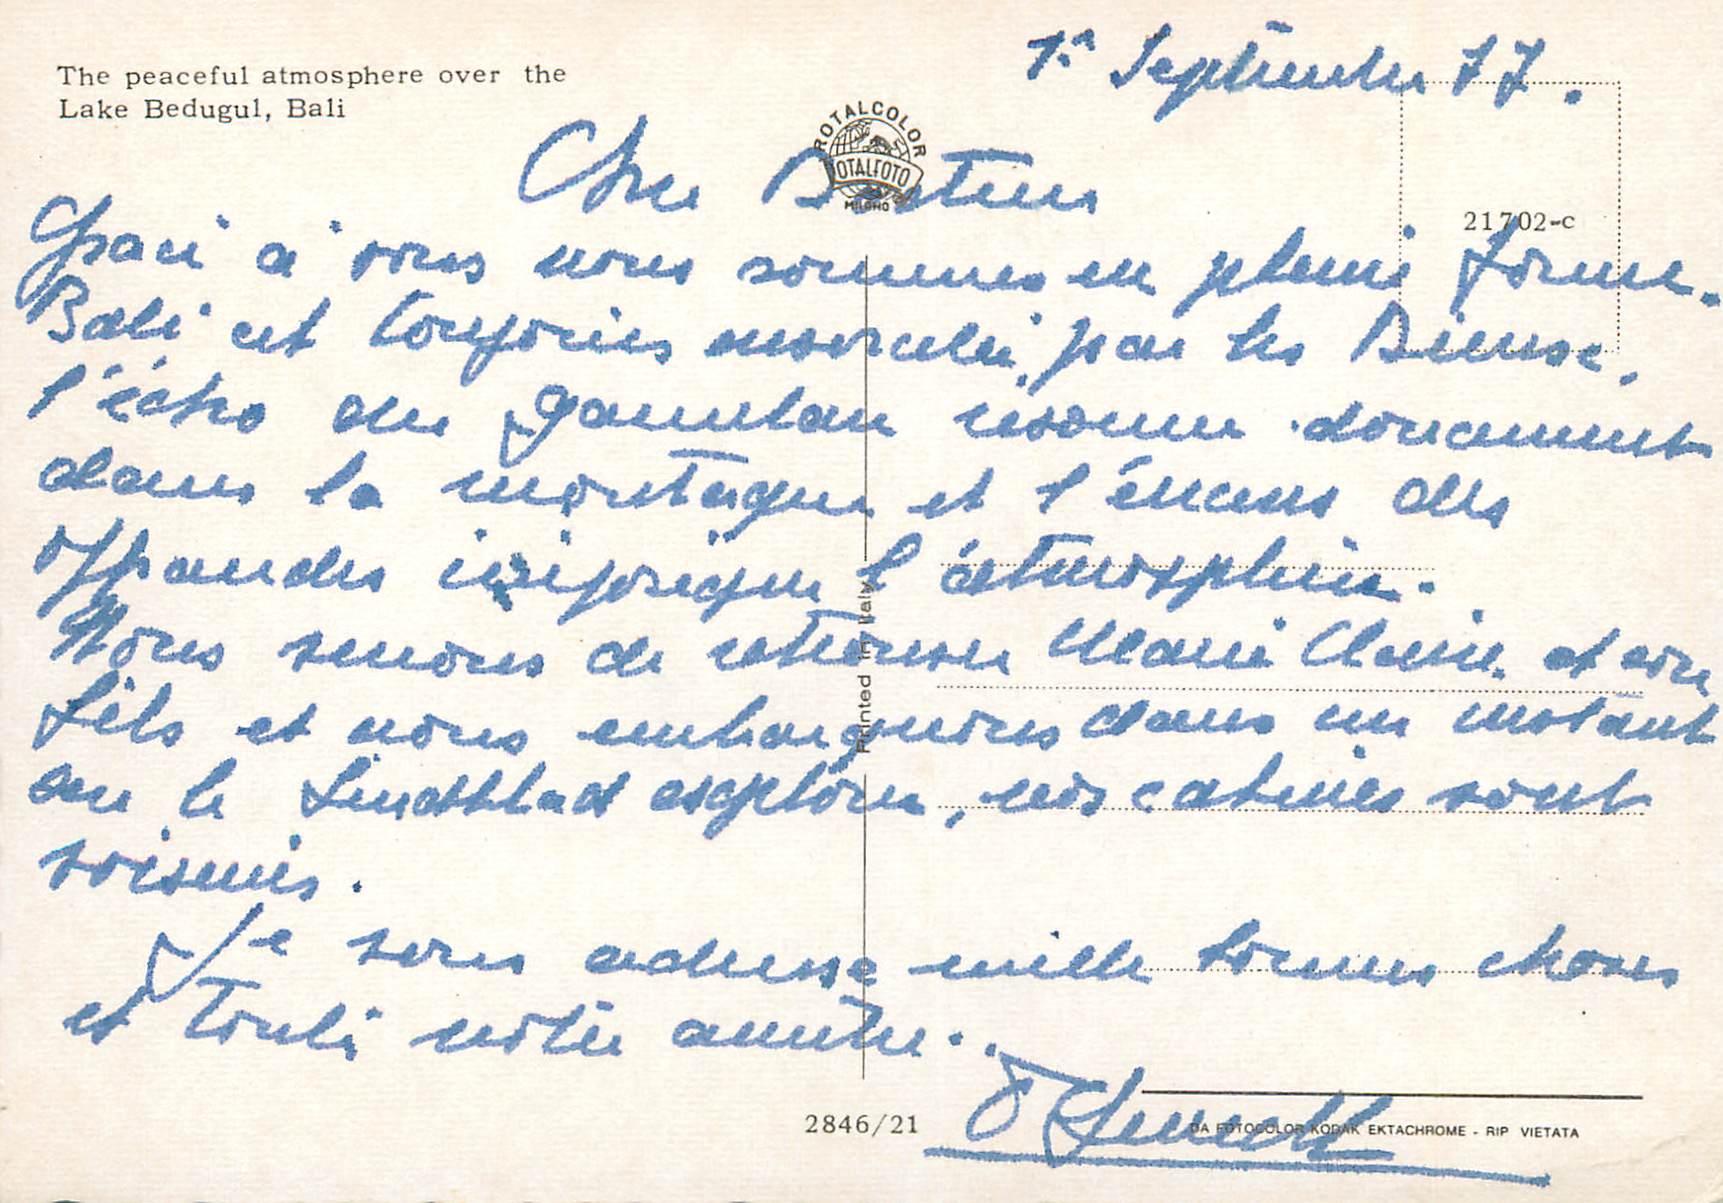 The peaceful atmosphere over the
Lake Bedugul, Bali
1er Septembre 77.
ROTALCOLOR
ROTALFOTO
MILANO
21702-c
Cher
Grace à vous nous sommes en pleine forme.
Bali est toujours ensorcelée par les Dieux,
l'écho du gamelan résonne doucement
dans la montagne et l'encens des
offrandes imprègne l'atmosphère.
Nous venons de retrouver Marie Claire et son
fils et nous embarquons dans un instant
sur le Lindblad explorer, nos cabines sont
voisines.
Je vous adresse mille bonnes choses
et toute notre amitié..
Printed in Italy
2846/21
DA FOTOCOLOR KODAK EKTACHROME - RIP VIETATA